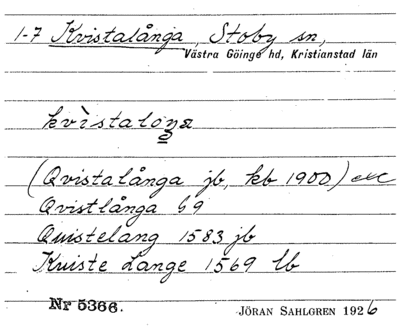 1-7 Kvistalånga, Stoby sn,
Västra Göinge hd, Kristianstad län
(Qvistalånga jb, kb 1900) etc
Qvistlånga 69
Quistelang 1583 jb
Kuiste Lange 1569 lb
Nr 5366.
JÖRAN SAHLGREN 1926